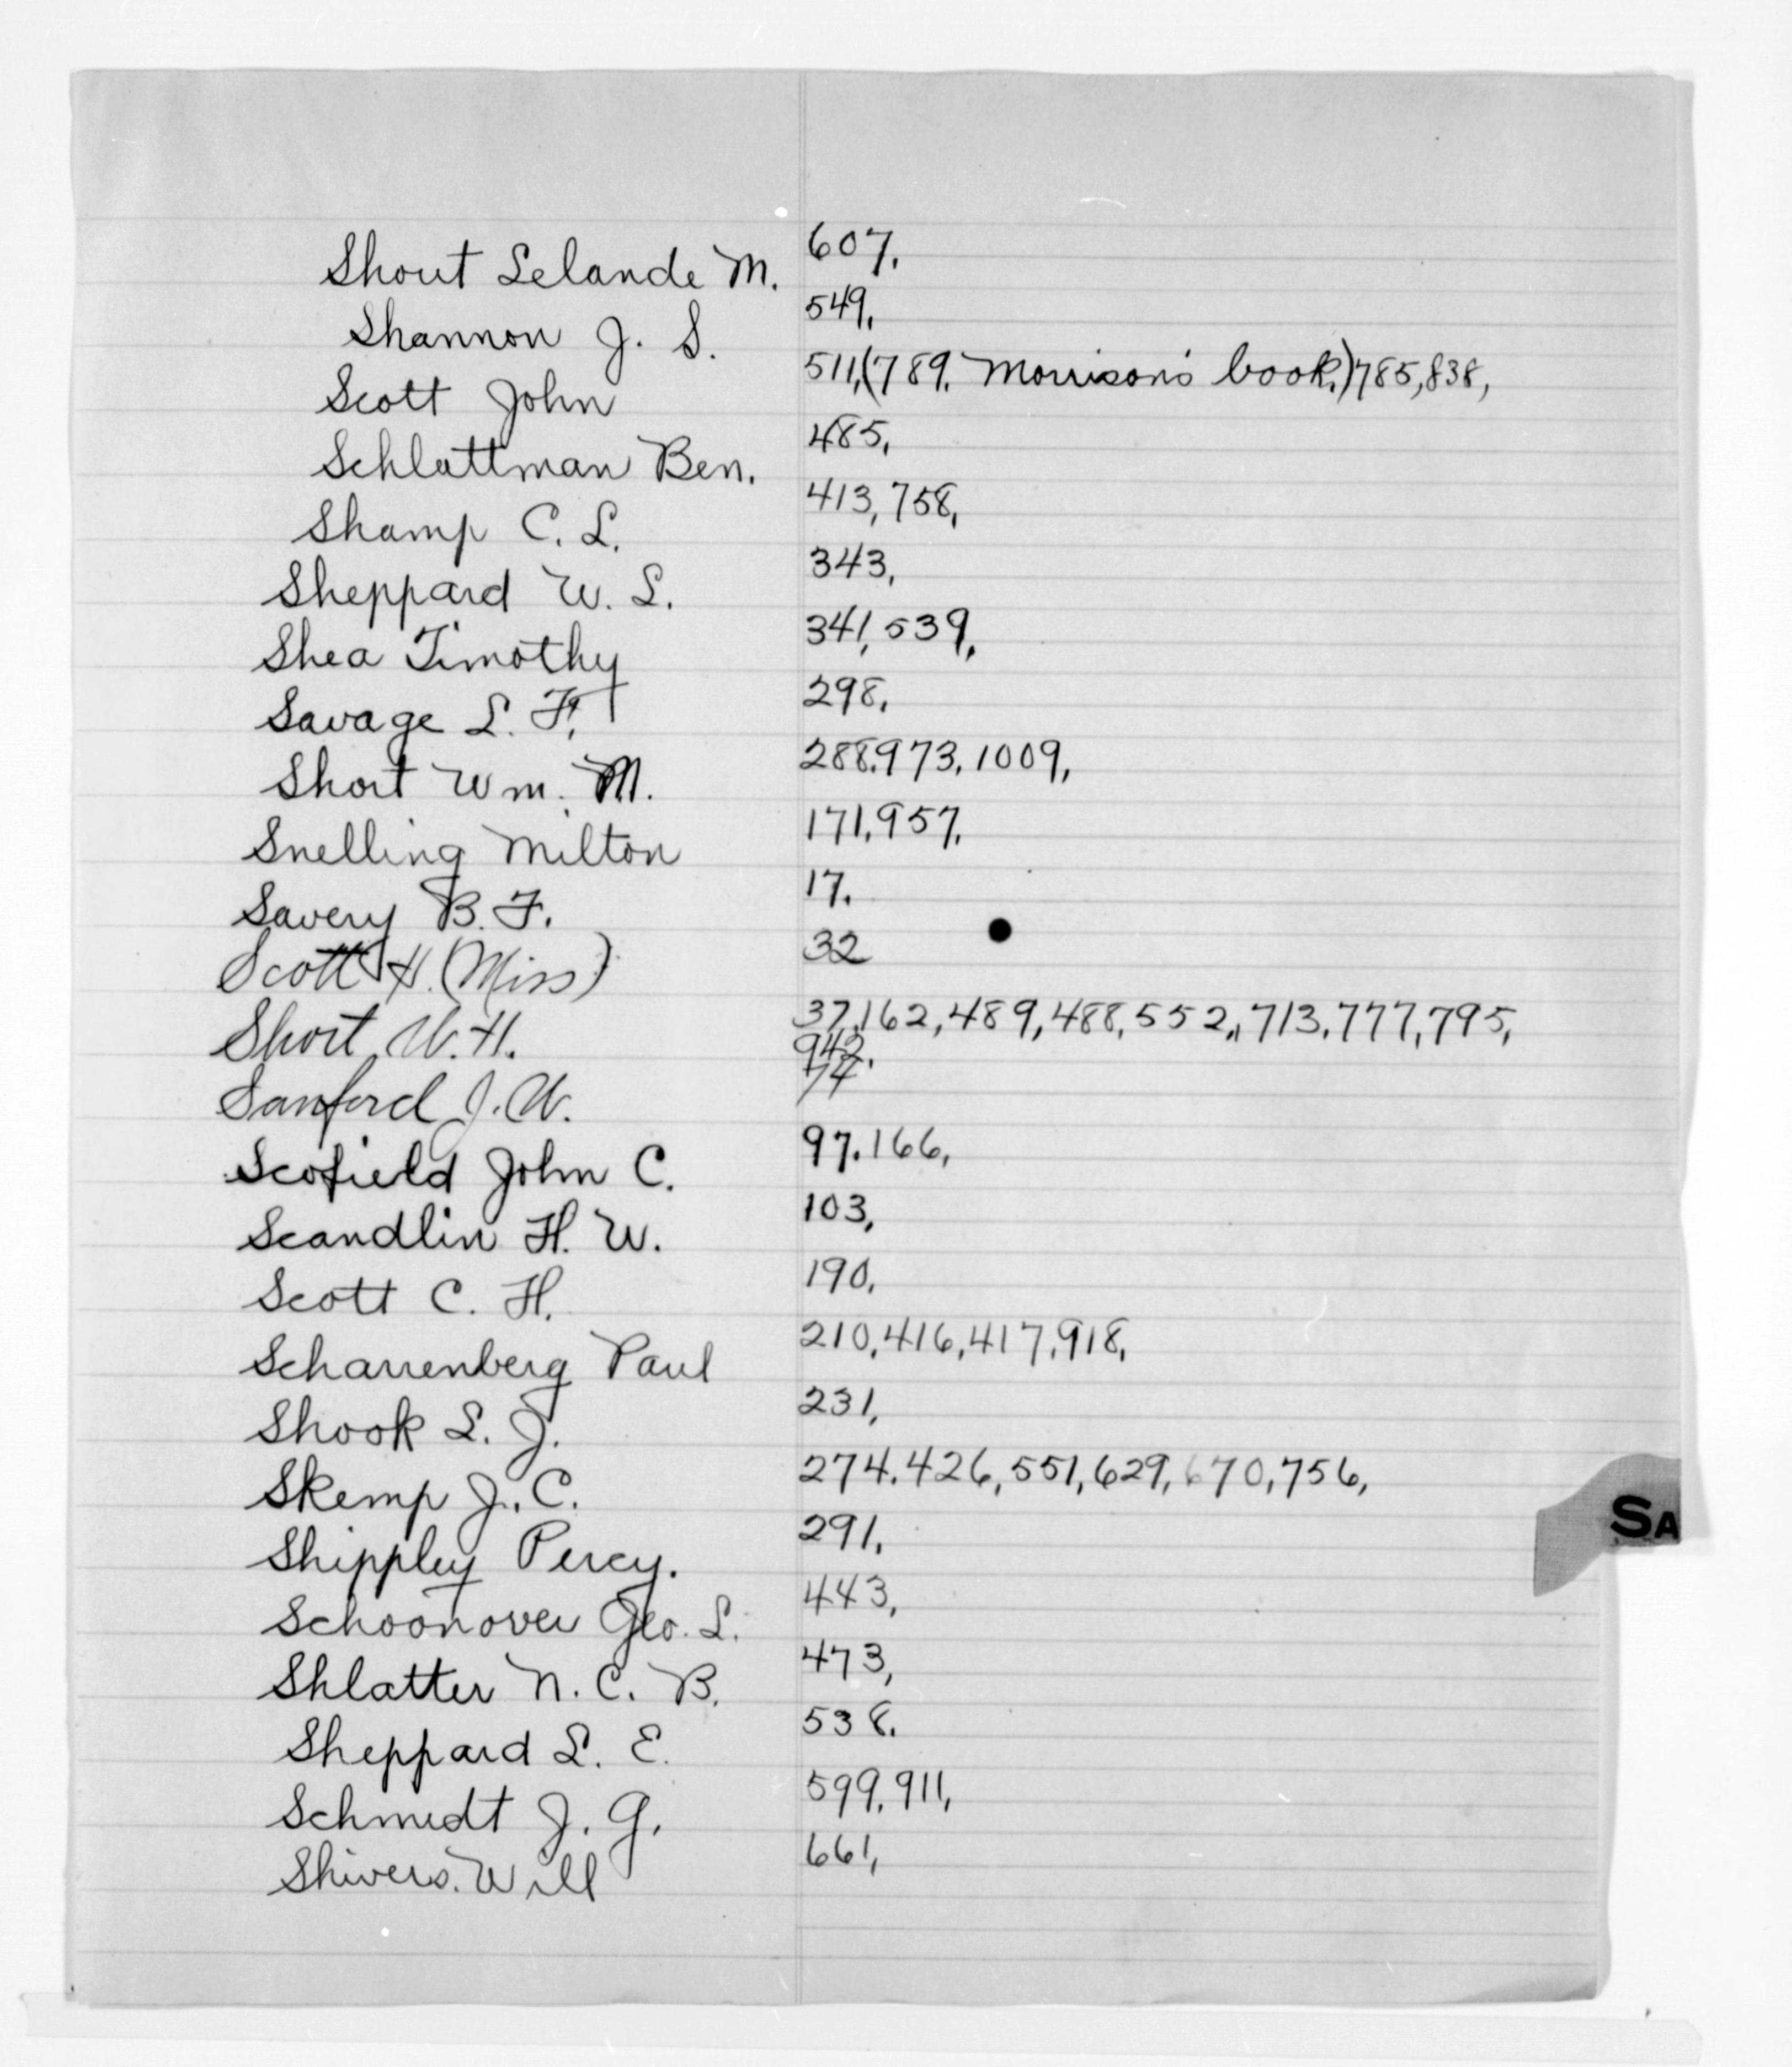 Shout Lelande M. 607.
Shannon J. S. 549.
Scott John 511,(789. Morrison's book.)785,838,
Schlattman Ben. 485.
Shamp C. L. 413,758,
Sheppard W. L. 343,
Shea Timothy 341,539,
Savage L. F. 298.
Short Wm. M. 288.973.1009,
Snelling Milton 171.957.
Savery B. F. 17.
Scott H. (Miss) 32
Short W. H. 37.162,489,488,552,,713.777,795,
942.
Sanford J. W. 74
Scofield John C. 97.166,
Scandlin H. W. 103,
Scott C. H. 190.
Scharrenberg Paul 210,416,417,918,
Shook L. J. 231,
Skemp J. C. 274.426,551,629,670,756,
Shippley Percy. 291.
Schoonover Geo. L. 443,
Shlatter N. C. B. 473,
Sheppard L. E. 538.
Schmidt J. G. 599.911,
Shivers. Will 661,
SA